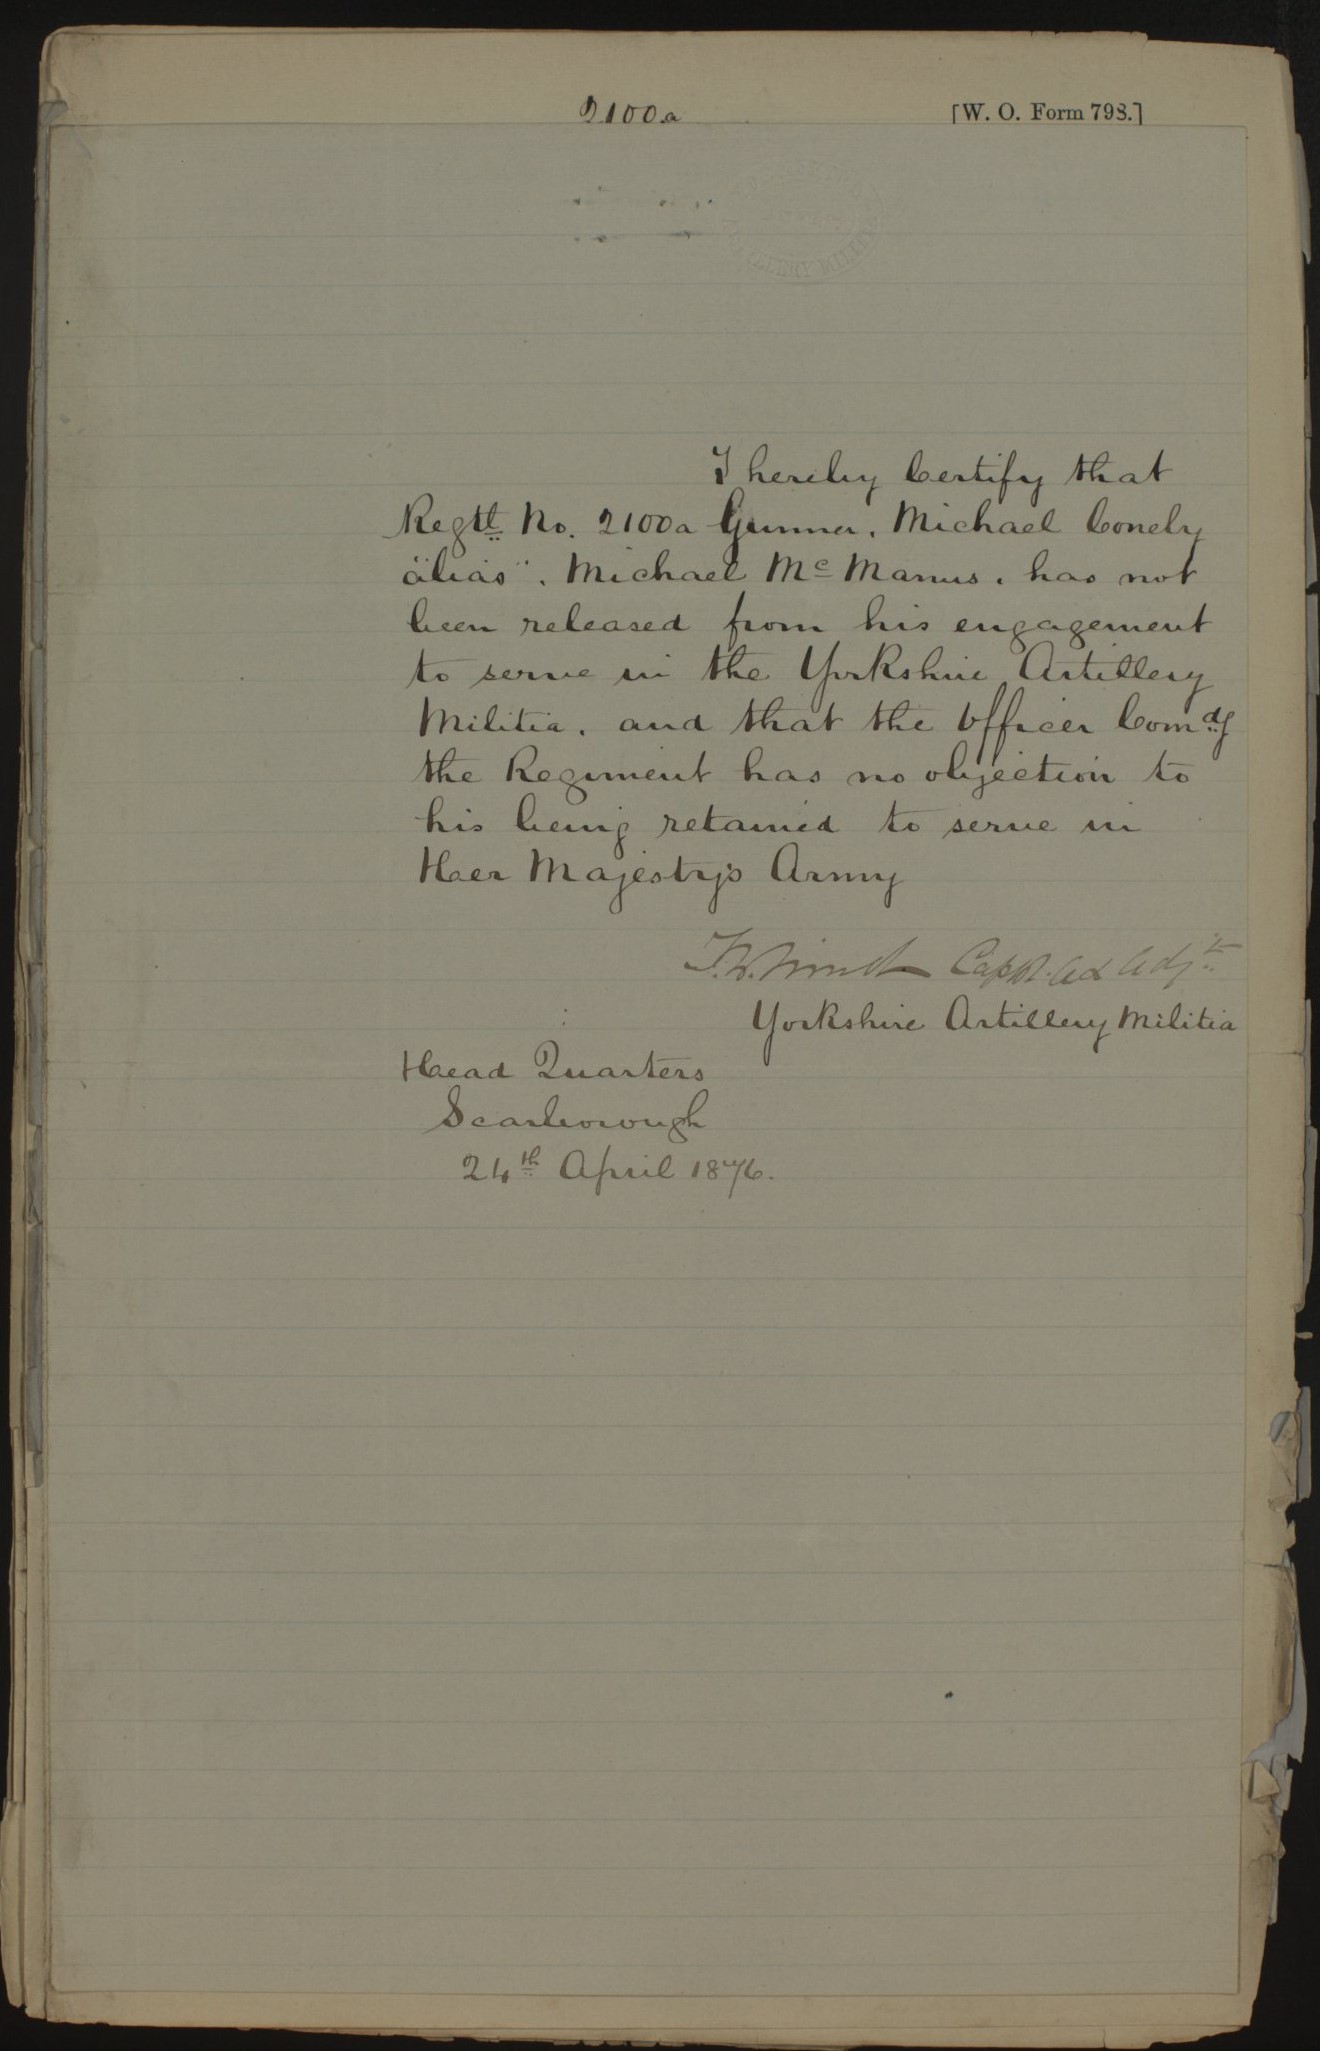 2100a
[W. O. Form 798.]
I hereby Certify that
Regtl No. 2100a Gunner. Michael Conely
"alias". Michael Mc Manus. has not
been released from his engagement
to serve in the Yorkshire Artillery
Militia. and that the Officer Comdg
the Regiment has no objection to
his being retained to serve in
Her Majesty's Army
Capt. Adjt
Yorkshire Artillery Militia
Head Quarters
Scarborough
24th April 1876.